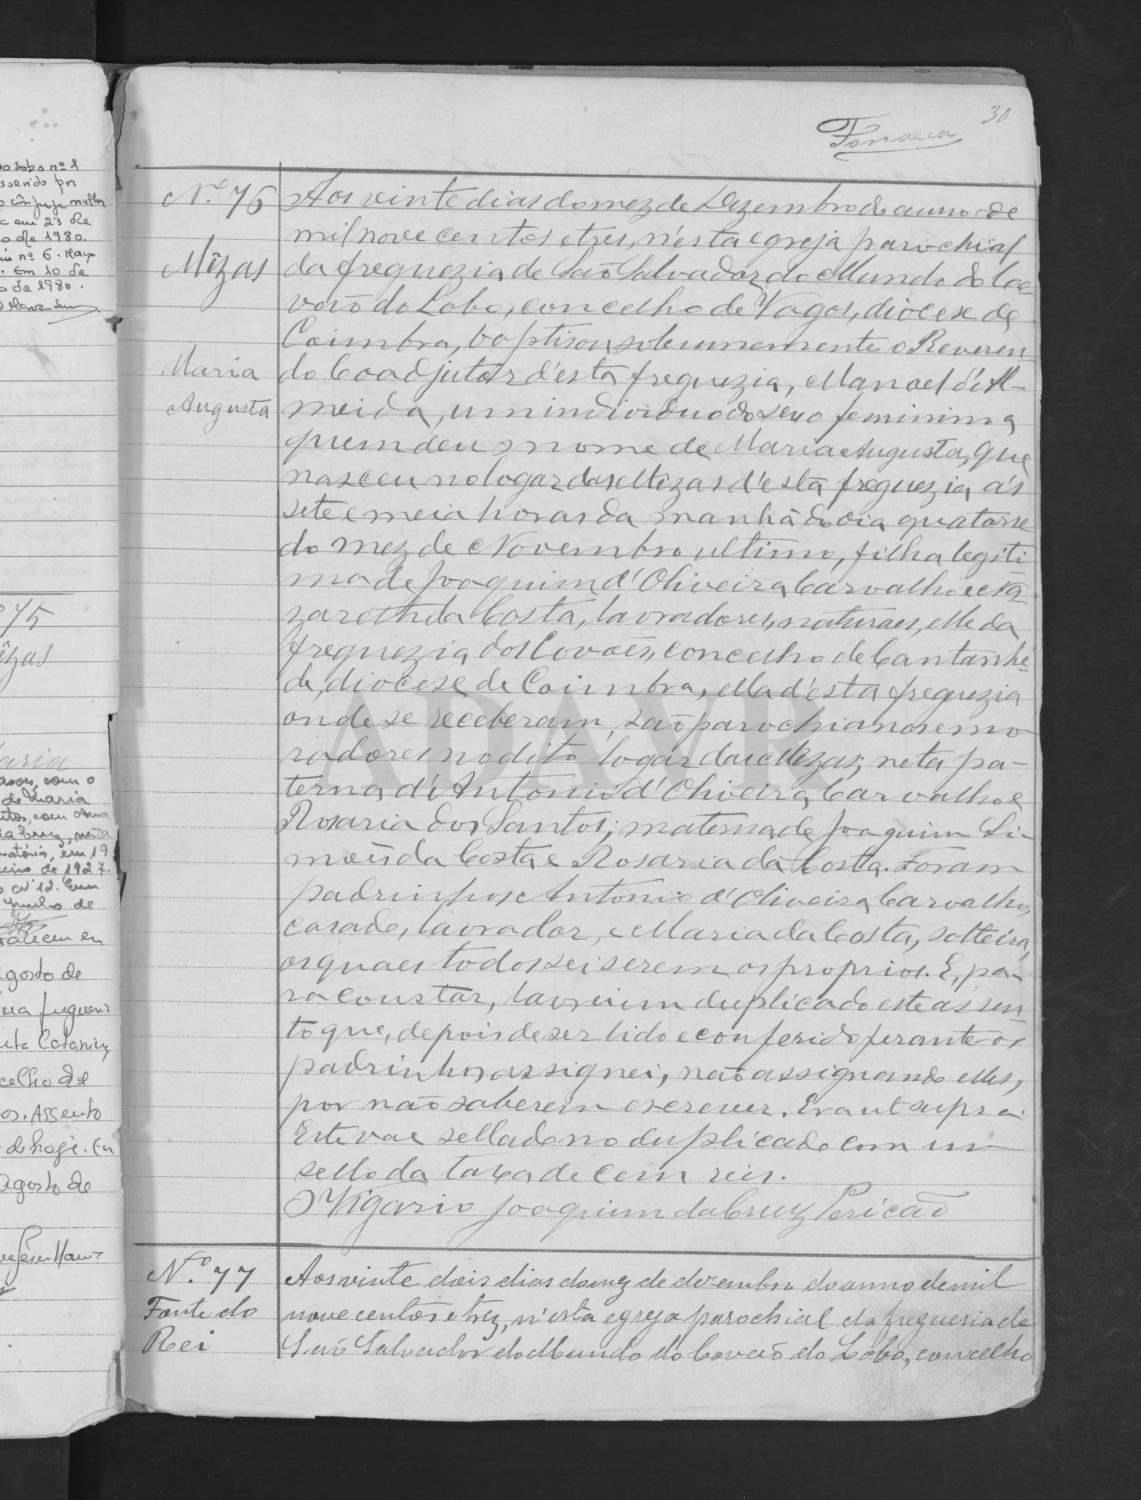 30
Fonseca
N.º 76
Mêzas
Maria
Augusta
Aos vinte dias do mez de Dezembro do anno de
mil nove centos e tres, n'esta egreja parochial
da freguezia de São Salvador do Mundo do Co-
vão do Lobo, concelho de Vagos, diocese de
Coimbra, baptisou solemnemente o Reveren
do Coadjutor d'esta freguezia, Manoel d'Al-
meida, um individuo do sexo feminino a
quem deu o nome de Maria Augusta, que
nasceu no logar das Mezas d'esta freguezia ás
sete e meia horas da manhã do dia quatorse
do mez de Novembro ultimo, filha legiti
ma de Joaquim d'Oliveira Carvalho e
da Costa, lavradores, naturaes, elle da
freguezia dos Covões, concelho de Cantanhe-
de, diocese de Coimbra, ella d'esta freguezia
onde se receberam, são parochianos e mo
radores no dito logar das Mezas; neta pa-
terna d'Antonio d'Oliveira Carvalho e
Rosaria dos Santos; materna de Joaquim Si-
mões da Costa e Rosaria da Costa. Foram
padrinhos Antonio d'Oliveira Carvalho,
casado, lavrador, e Maria da Costa, solteira,
os quaes todos sei serem os proprios. E, pa-
ra constar, lavrei em duplicado este assen
to que, depois de ser lido e conferido perante os
padrinhos assignei, não assignando elles,
por não saberem escrever. Era ut supra.
Este vae sellado no duplicado com um
sello da taxa de cem reis.
O Vigario Joaquim da Cruz Pericão
N.º 77
Fonte do
Rei
Aos vinte dois dias do mez de dezembro do anno de mil
nove centos e trez, n'esta egreja parochial da freguesia de
São Salvador do Mundo do Covão do Lobo, concelho
ADAVR